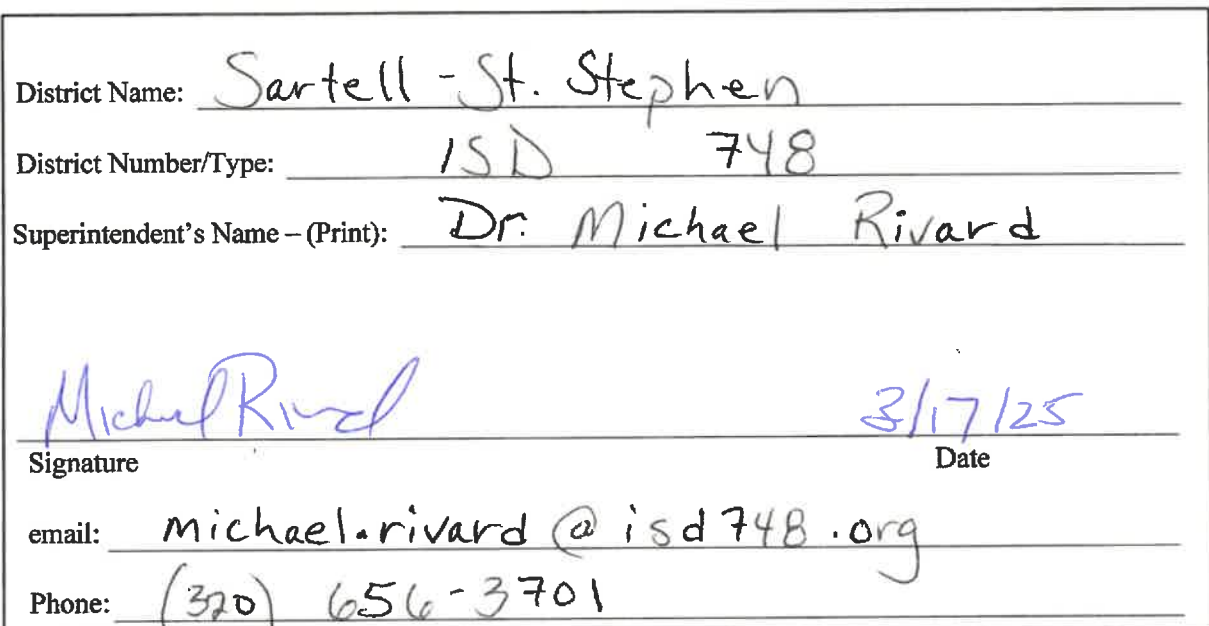 District Name: Sartell - St. Stephen
District Number/Type: ISD 748
Superintendent's Name – (Print): Dr. Michael Rivard
Michael Rivard 3/17/25
Signature Date
email: michael.rivard@isd748.org
Phone: (320) 656-3701